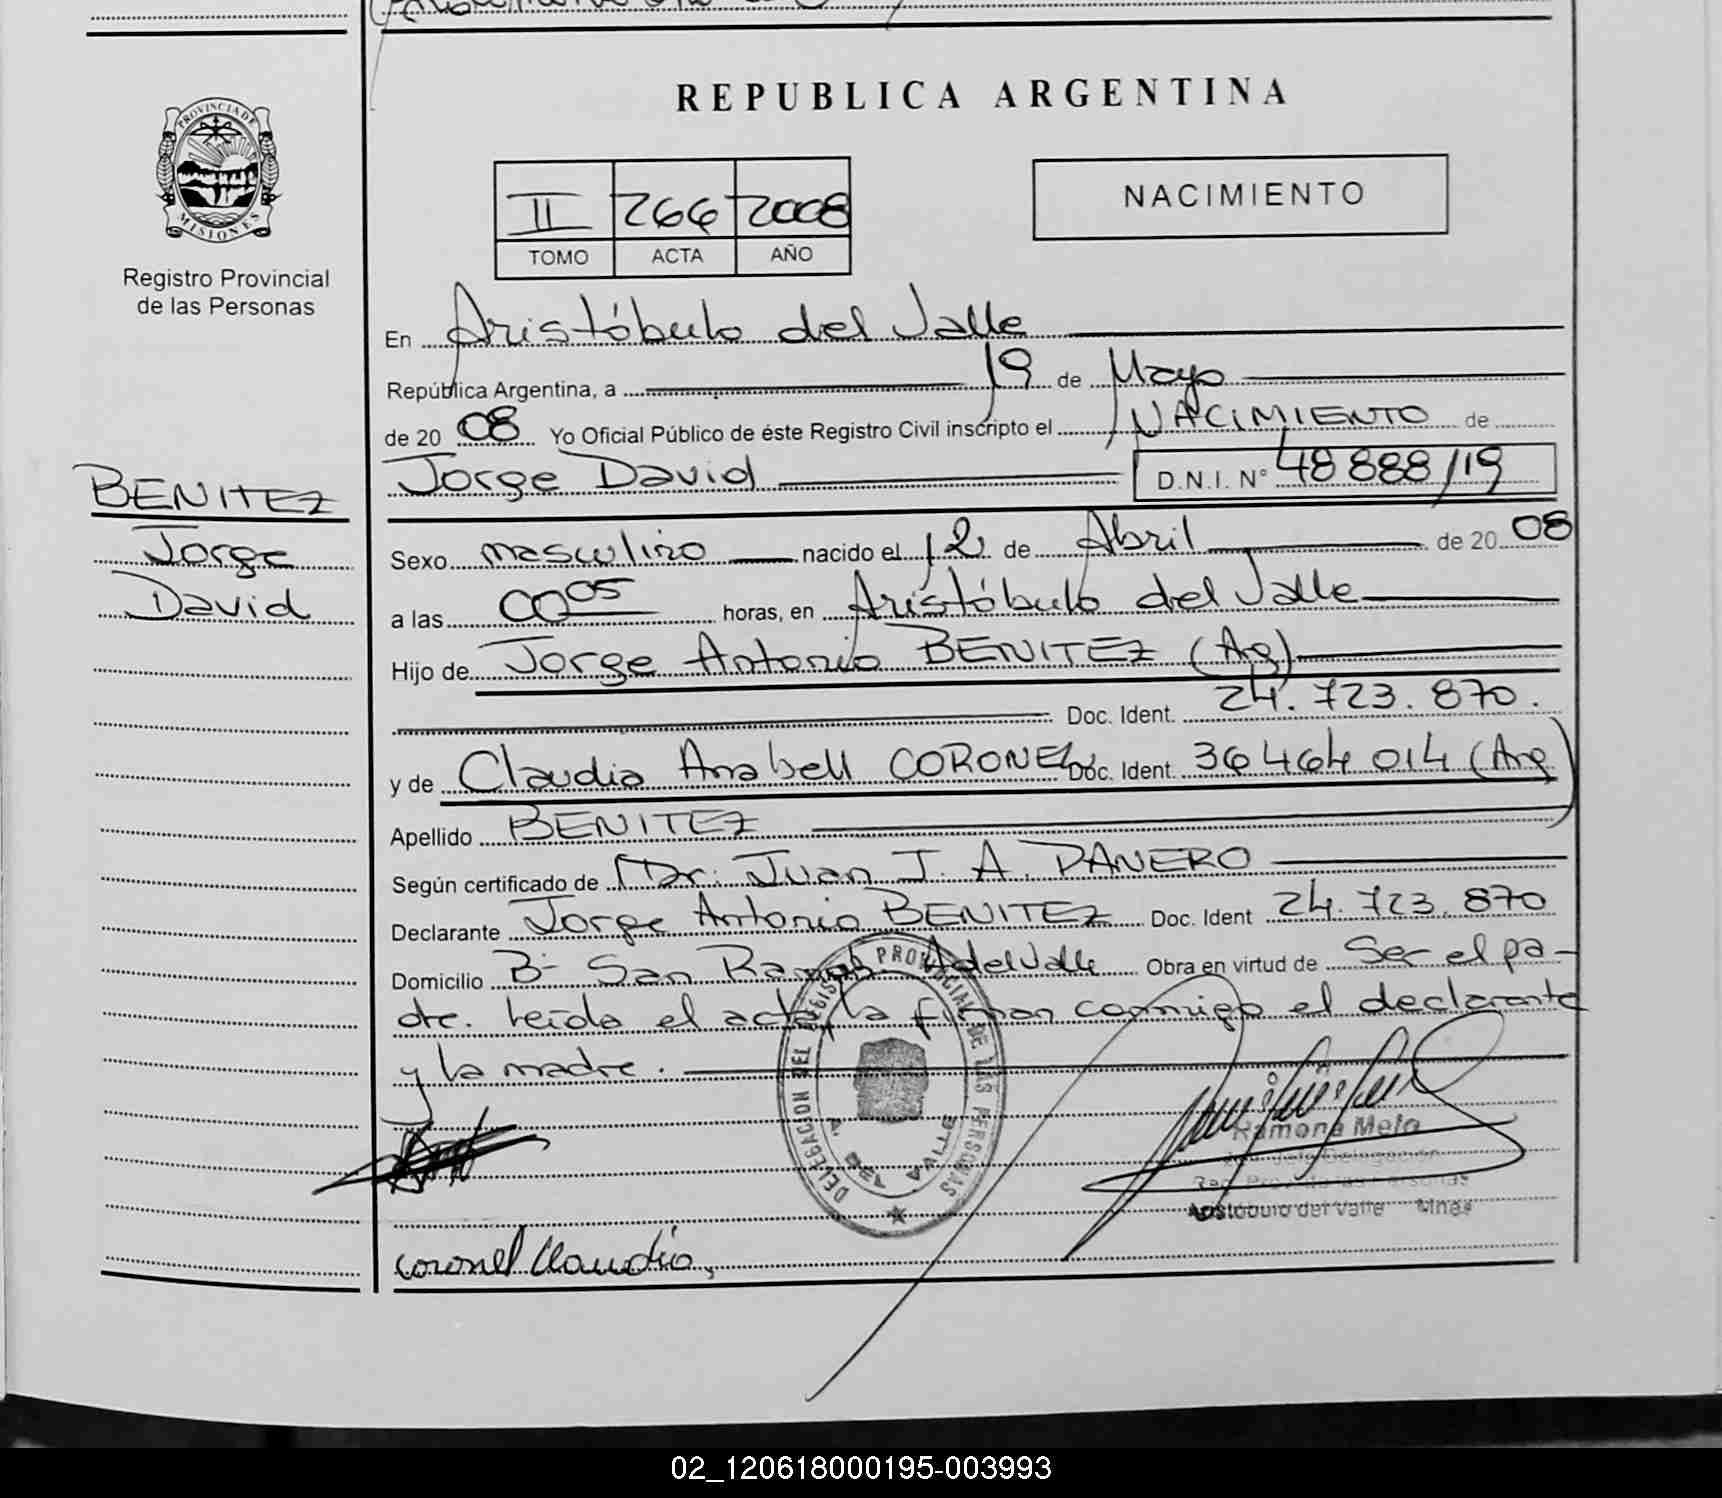 REPUBLICA ARGENTINA
PROVINCIA DE MISIONES
Registro Provincial
de las Personas
II 266 2008
TOMO ACTA AÑO
NACIMIENTO
En Aristóbulo del Valle
República Argentina, a 19 de Mayo
de 20 08 Yo Oficial Público de éste Registro Civil inscripto el NACIMIENTO de
Jorge David D.N.I. N° 48 888 119
BENITEZ
Jorge
David
Sexo masculino nacido el 12 de Abril de 20 08
a las 00 05 horas, en Aristóbulo del Valle
Hijo de Jorge Antonio BENITEZ (Arg)
Doc. Ident. 24.723.870.
y de Claudia Anabell CORONEL Doc. Ident. 36 464 014 (Arg)
Apellido BENITEZ
Según certificado de Dr. Juan J. A. DANERO
Declarante Jorge Antonio BENITEZ Doc. Ident 24.723.870
Domicilio B- San Ramón A del Valle Obra en virtud de Ser el pa-
dre. leída el acta, la firman conmigo el declarante
y la madre.
DELEGACION DEL REGISTRO PROVINCIAL DE LAS PERSONAS
Ramona Melo
Reg. Prov. de las Personas
Aristóbulo del Valle Mnes
coronel Claudia,
02_120618000195-003993